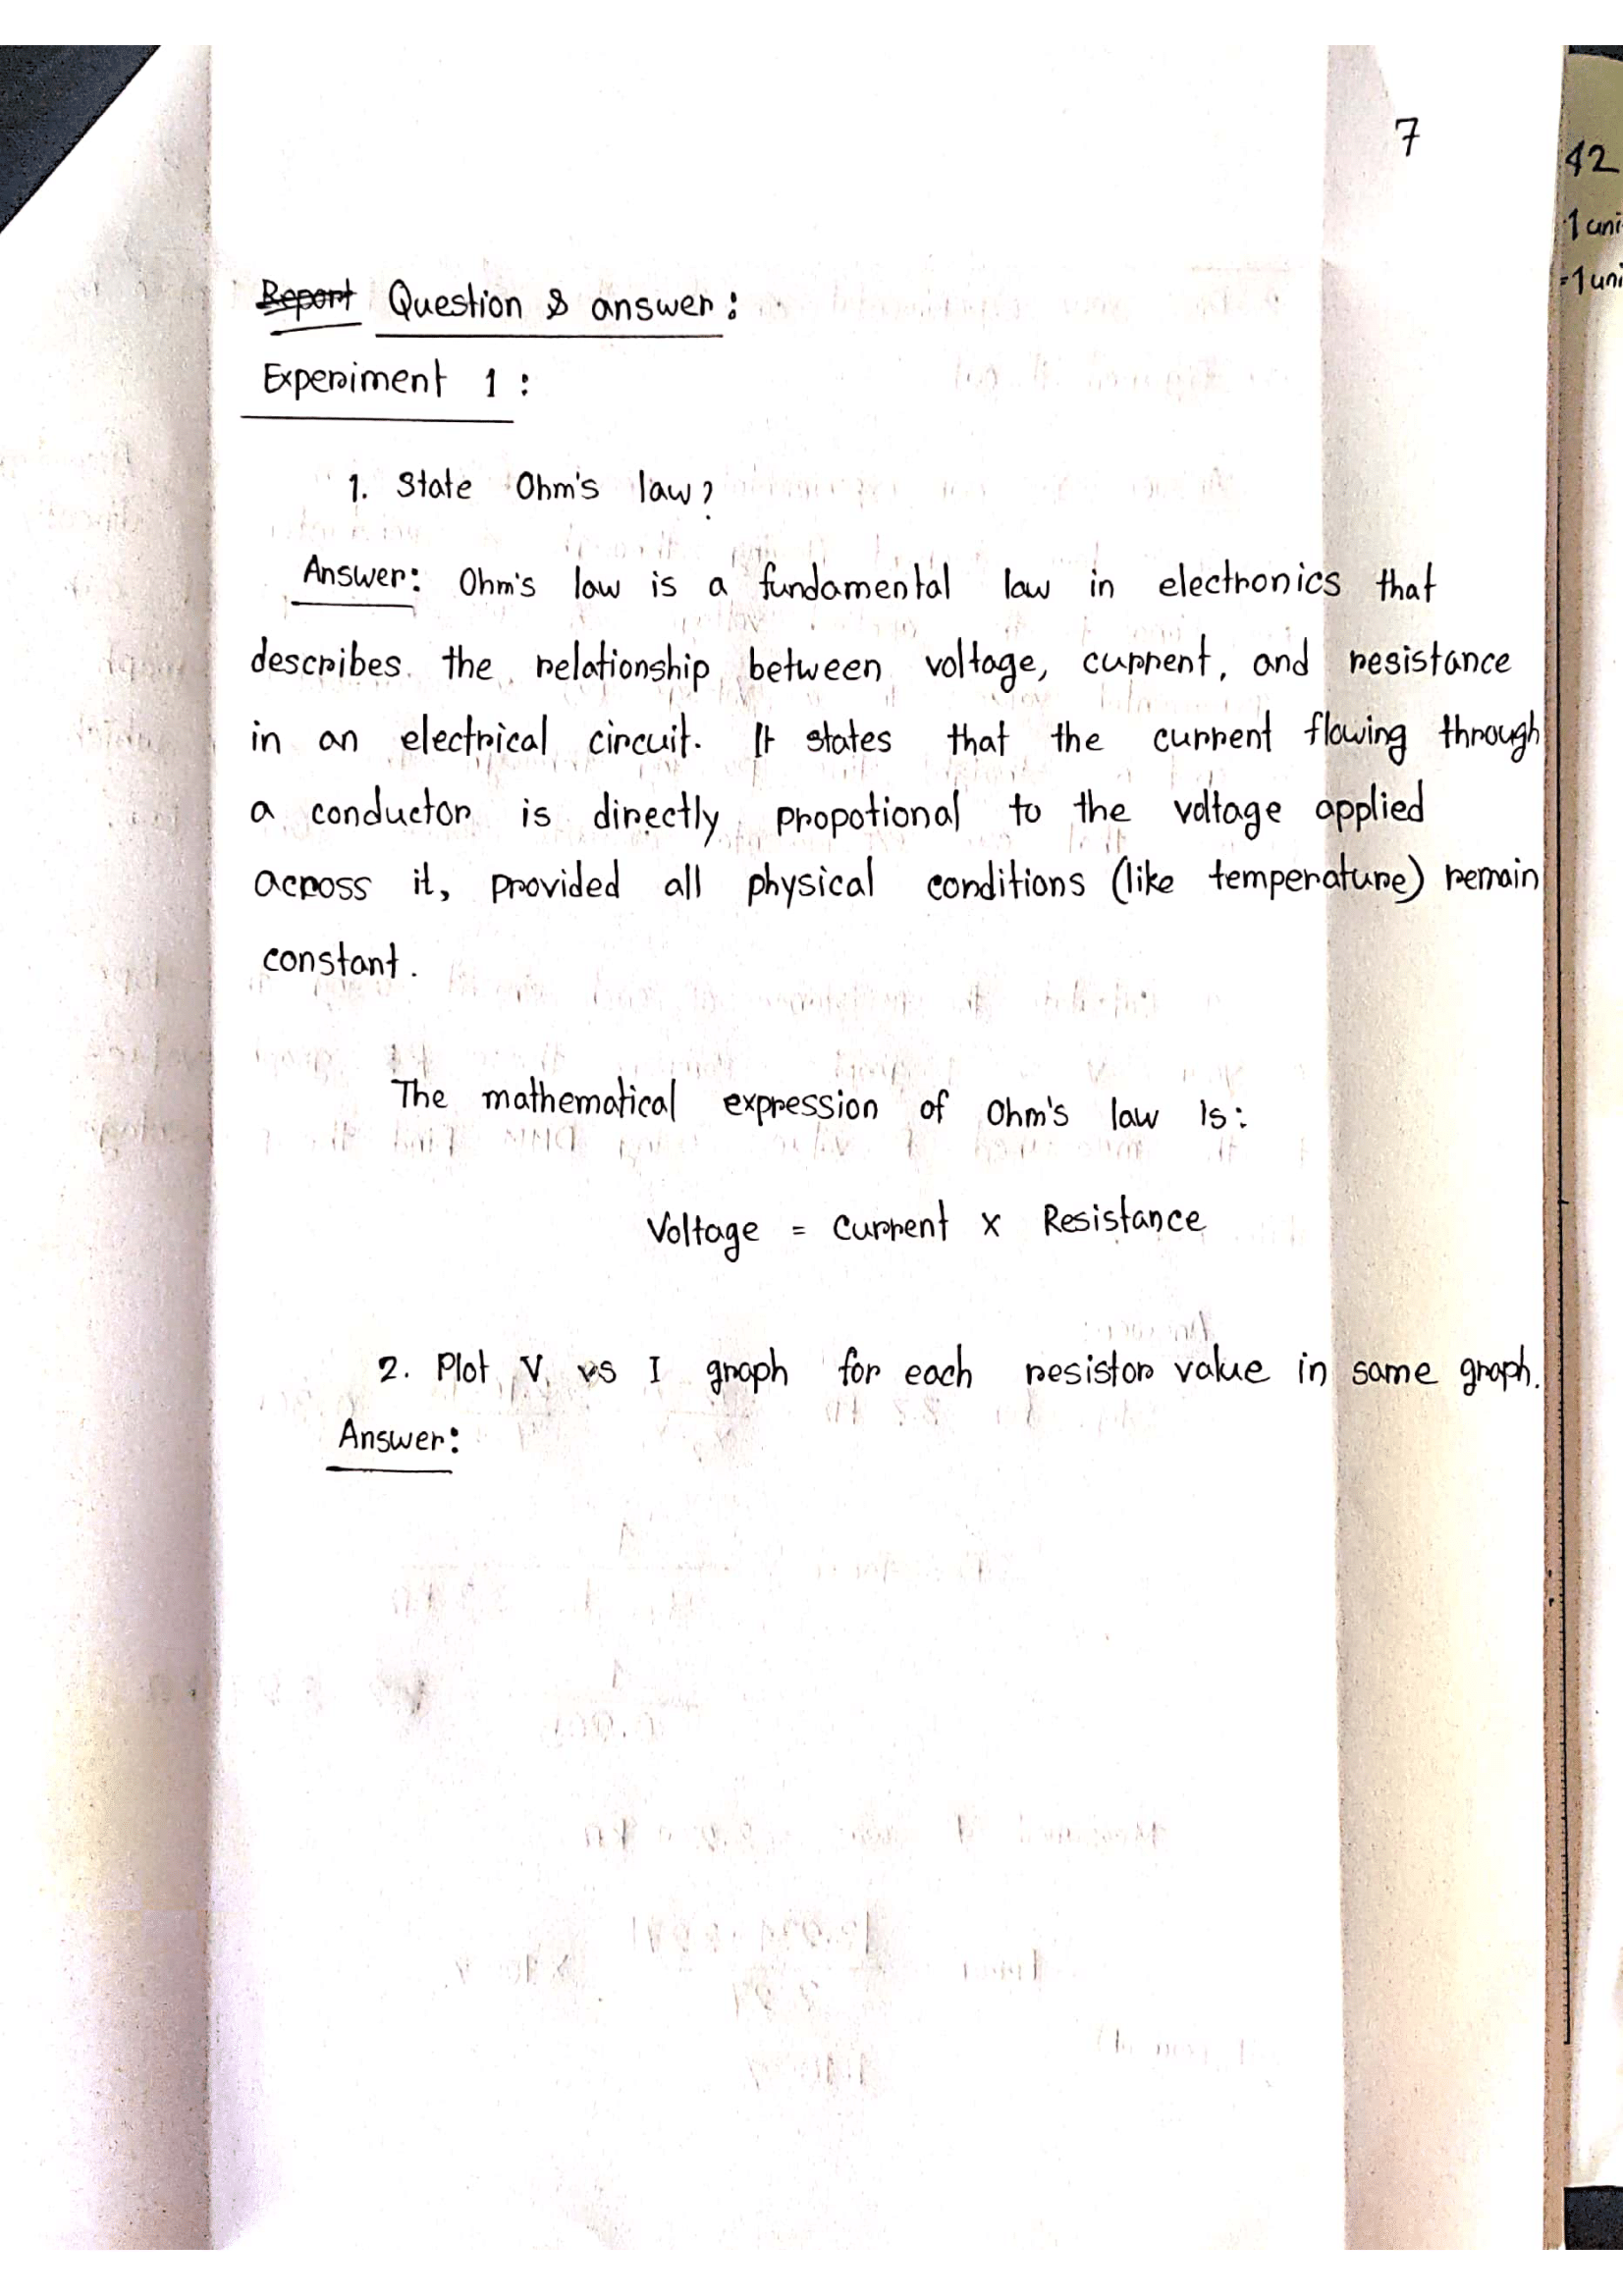 7
42
1 uni
=1 uni
Report Question & answer:
Experiment 1:
1. State Ohm's law?
Answer: Ohm's law is a fundamental law in electronics that
describes the relationship between voltage, current, and resistance
in an electrical circuit. It states that the current flowing through
a conductor is directly propotional to the voltage applied
across it, provided all physical conditions (like temperature) remain
constant.
The mathematical expression of Ohm's law is:
Voltage = Current x Resistance
2. Plot V vs I graph for each resistor value in same graph.
Answer: